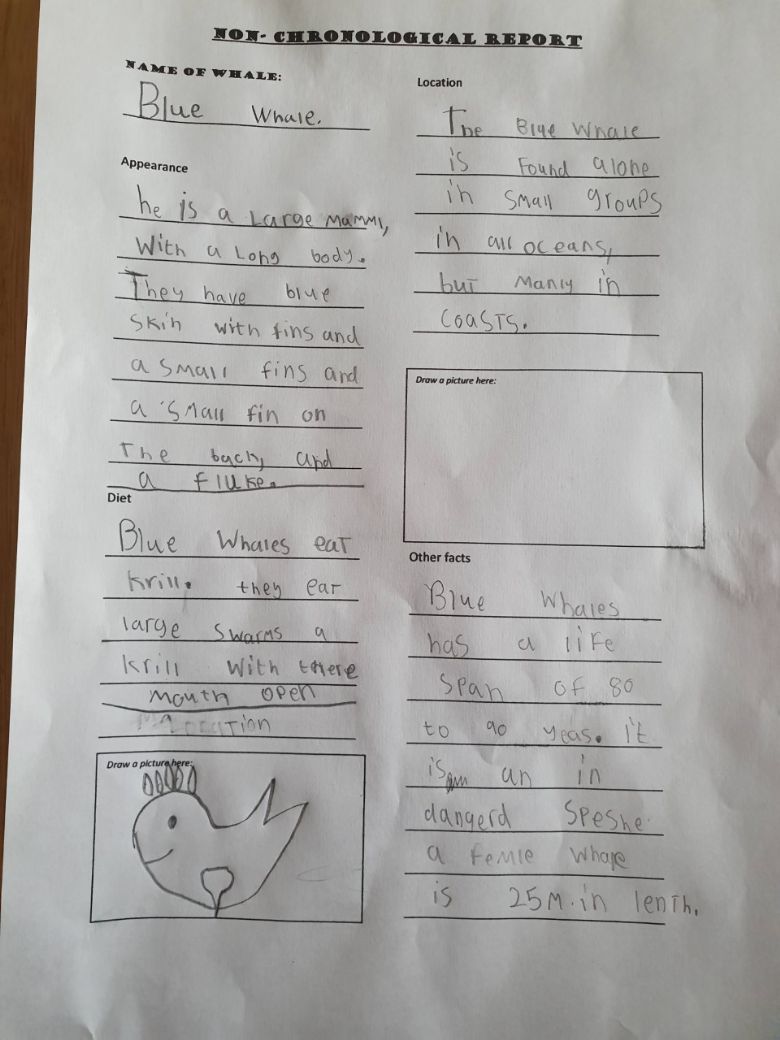 NON- CHRONOLOGICAL REPORT
NAME OF WHALE:
Blue Whale.
Appearance
he is a Large mamml,
With a Long body.
They have blue
skin with fins and
a small fins and
a small fin on
The back, and
a fluke.
Diet
Blue Whales eat
krill. they eat
large swarms a
krill with there
mouth open
Draw a picture here:
Location
The Blue Whale
is Found alone
in small groups
in all oceans,
but manly in
coasts.
Draw a picture here:
Other facts
Blue Whales
has a life
span of 80
to 90 yeas. it
is an in
dangerd speshe.
a femle whale
is 25M.in lenth.